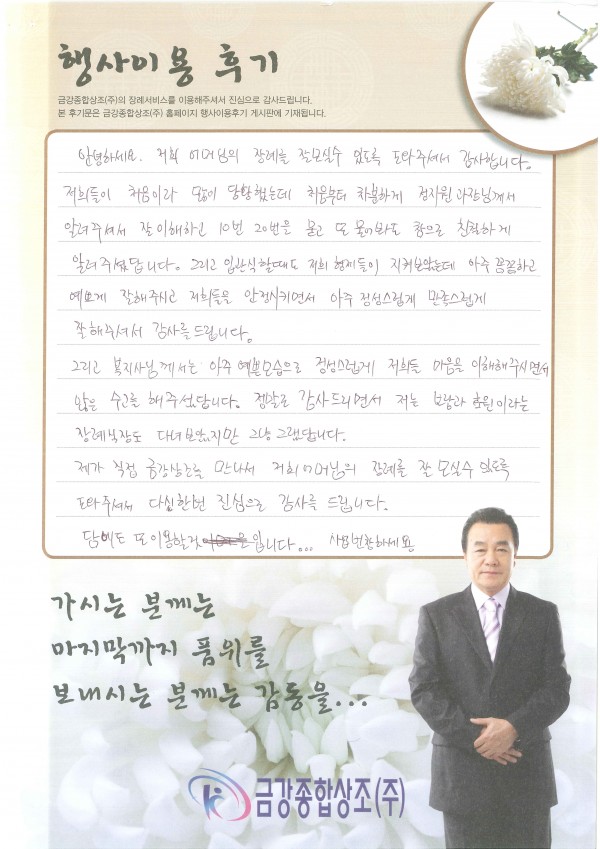 행사이용 후기
금강종합상조(주)의 장례서비스를 이용해주셔서 진심으로 감사드립니다.
본 후기문은 금강종합상조(주) 홈페이지 행사이용후기 게시판에 기재됩니다.
안녕하세요. 저희 어머님의 장례를 잘모실수 있도록 도와주셔서 감사합니다.
저희들이 처음이라 많이 당황했는데 처음부터 차분하게 정자원 과장님께서
알려주셔서 잘 이해하고 10번 20번을 묻고 또 물어봐도 참으로 친절하게
알려주셨답니다. 그리고 입관식할때도 저희 형제들이 지켜보았는데 아주 꼼꼼하고
예쁘게 잘해주시고 저희들을 안정시키면서 아주 정성스럽게 만족스럽게
잘해주셔서 감사를 드립니다.
그리고 복지사님께서는 아주 예쁜모습으로 정성스럽게 저희들 마음을 이해해주시면서
많은 수고를 해주셨답니다. 정말로 감사드리면서 저는 보람과 효원이라는
장례식장도 다녀보았지만 그냥 그랬답니다.
제가 직접 금강상조를 만나서 저희어머님의 장례를 잘 모실수 있도록
도와주셔서 다시한번 진심으로 감사를 드립니다.
담에도 또 이용할것 입니다... 사업번창하세요
가시는 분께는
마지막까지 품위를
보내시는 분께는 감동을...
금강종합상조(주)